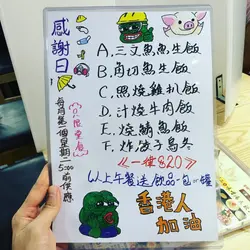 感謝日
A, 三文魚魚生飯
B, 角切魚生飯
C, 照燒雞扒飯
D, 汁燒牛肉飯
E, 燒鯖魚飯
F, 炸波子烏冬
《一律$20》
以上午餐送飲品一包/罐
香港人
加油
每月第個星期二
5:00前供應